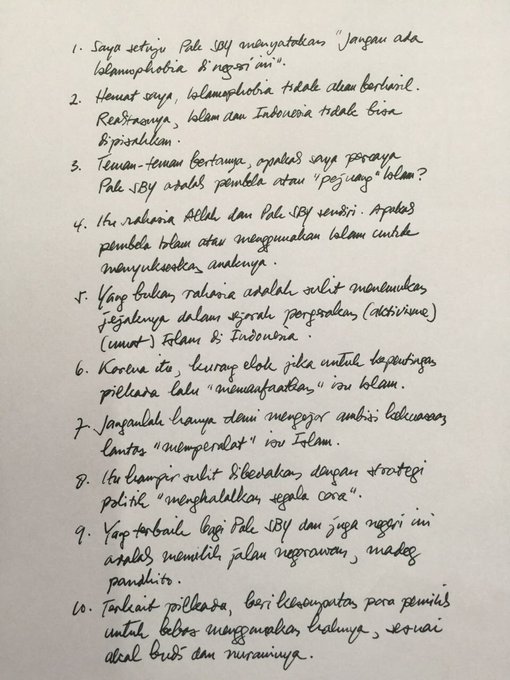 1. Saya setuju Pak SBY menyatakan "Jangan ada
Islamophobia di negeri ini".
2. Hemat saya, Islamophobia tidak akan berhasil.
Realitasnya, Islam dan Indonesia tidak bisa
dipisahkan.
3. Teman-teman bertanya, apakah saya percaya
Pak SBY adalah pembela atau "pejuang" Islam?
4. Itu rahasia Allah dan Pak SBY sendiri. Apakah
pembela Islam atau menggunakan Islam untuk
menyukseskan anaknya.
5. Yang bukan rahasia adalah sulit menemukan
jejaknya dalam sejarah pergerakan (aktivisme)
(umat) Islam di Indonesia.
6. Karena itu, kurang elok jika untuk kepentingan
pilkada lalu "memanfaatkan" isu Islam.
7. Janganlah hanya demi mengejar ambisi kekuasaan
lantas "memperalat" isu Islam.
8. Itu hampir sulit dibedakan dengan strategi
politik "menghalalkan segala cara".
9. Yang terbaik bagi Pak SBY dan juga negeri ini
adalah memilih jalan negarawan, madeg
pandhito.
10. Terkait pilkada, beri kesempatan para pemilih
untuk bebas menggunakan haknya, sesuai
akal budi dan nuraninya.